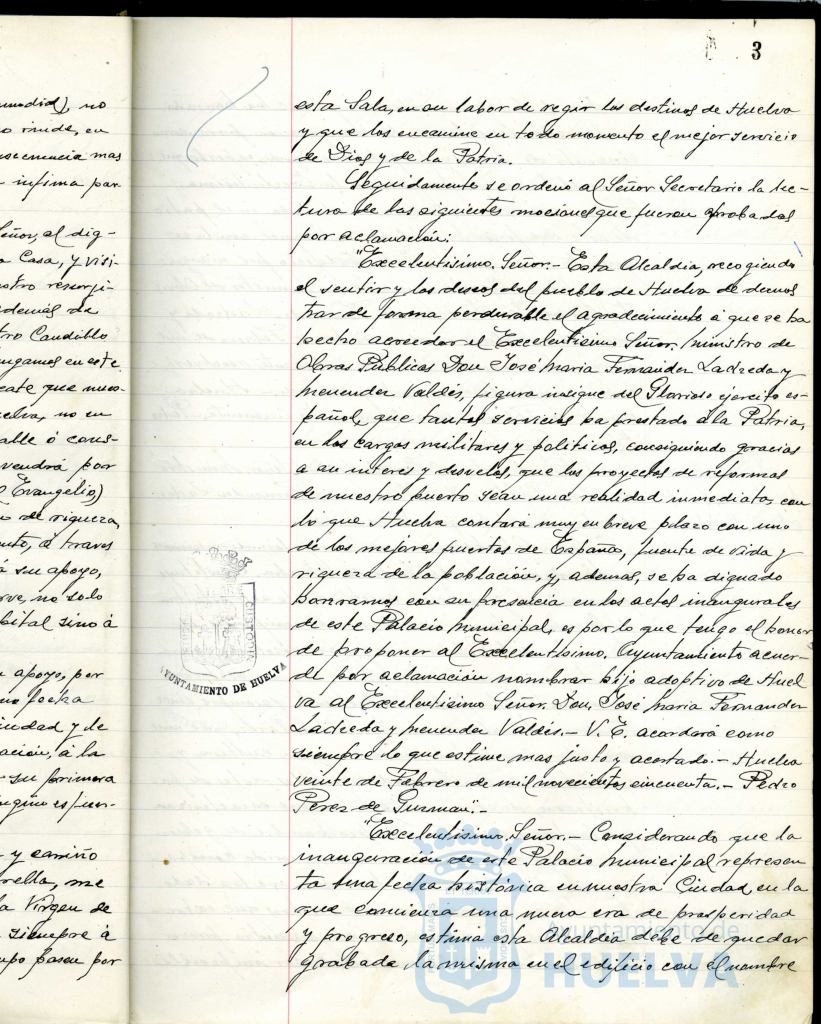 (unmodid), no
o rinde, en
secuencia mas
infima par
eñor, al dig-
a Casa, y visi-
stro resurgi-
demás de
tro Caudillo
engamos en este
cate que nues-
elva, no en
able ó cons-
vendrá por
l Evangelio)
de riqueza,
nto, á traves
á su apoyo,
rve, no solo
pital sino á
apoyo, por
fecha
iudad y de
ación, á la
su primera
y cariño
rella, me
la Virgen de
siempre á
mpo pasen por
3
esta Sala, en su labor de regir los destinos de Huelva
y que los encamine en todo momento el mejor servicio
de Dios y de la Patria.
Seguidamente se ordenó al Señor Secretario la lec-
tura de las siguientes mociones que fueron aprobadas
por aclamación:
"Excelentisimo. Señor.- Esta Alcaldia, recogiendo
el sentir y los deseos del pueblo de Huelva de demos
trar de forma perdurable el agradecimiento á que se ha
hecho acreedor el Excelentisimo Señor. Ministro de
Obras Públicas Don José Maria Fernander Ladreda y
Menender Valdés, figura insigne del Glorioso ejercito es-
pañol, que tantos servicios ha prestado á la Patria,
en los cargos militares y politicos, consiguiendo gracias
a su interes y desvelos, que los proyectos de reformas
de nuestro puerto sean una realidad inmediata, con
lo que Huelva contará muy en breve plazo con uno
de los mejores puertos de España, fuente de vida y
riqueza de la población, y, ademas, se ha dignado
honrarnos con su presencia en los actos inaugurales
de este Palacio Municipal, es por lo que tengo el honor
de proponer al Excelentisimo. Ayuntamiento acuer-
de por aclamación nombrar hijo adoptivo de Huel
va al Excelentisimo Señor. Don José Maria Fernander
Ladreda y Menender Valdés.- V. E. acordará como
siempre lo que estime mas justo y acertado.- Huelva
veinte de Febrero de mil novecientos cincuenta.- Pedro
Perez de Guzman".-
"Excelentisimo. Señor.- Considerando que la
inauguración de este Palacio Municipal represen
ta una fecha histórica en nuestra Ciudad, en la
que comienza una nueva era de prosperidad
y progreso, estima esta Alcaldia debe de quedar
grabada la misma en el edificio con el nombre
AYUNTAMIENTO DE HUELVA
Ayuntamiento de
HUELVA